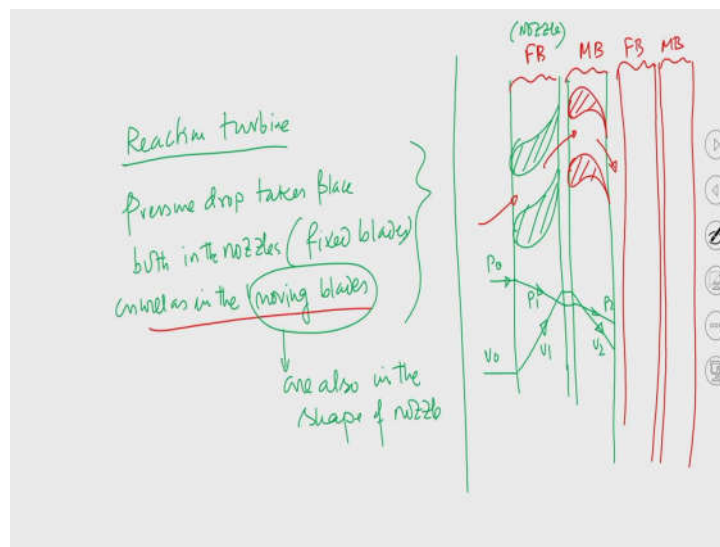 Reaction turbine
Pressure drop takes place
both in the nozzles (fixed blades)
as well as in the moving blades
are also in the
shape of nozzle
(nozzle)
FB MB FB MB
P0 P1 P2
V0 V1 V2